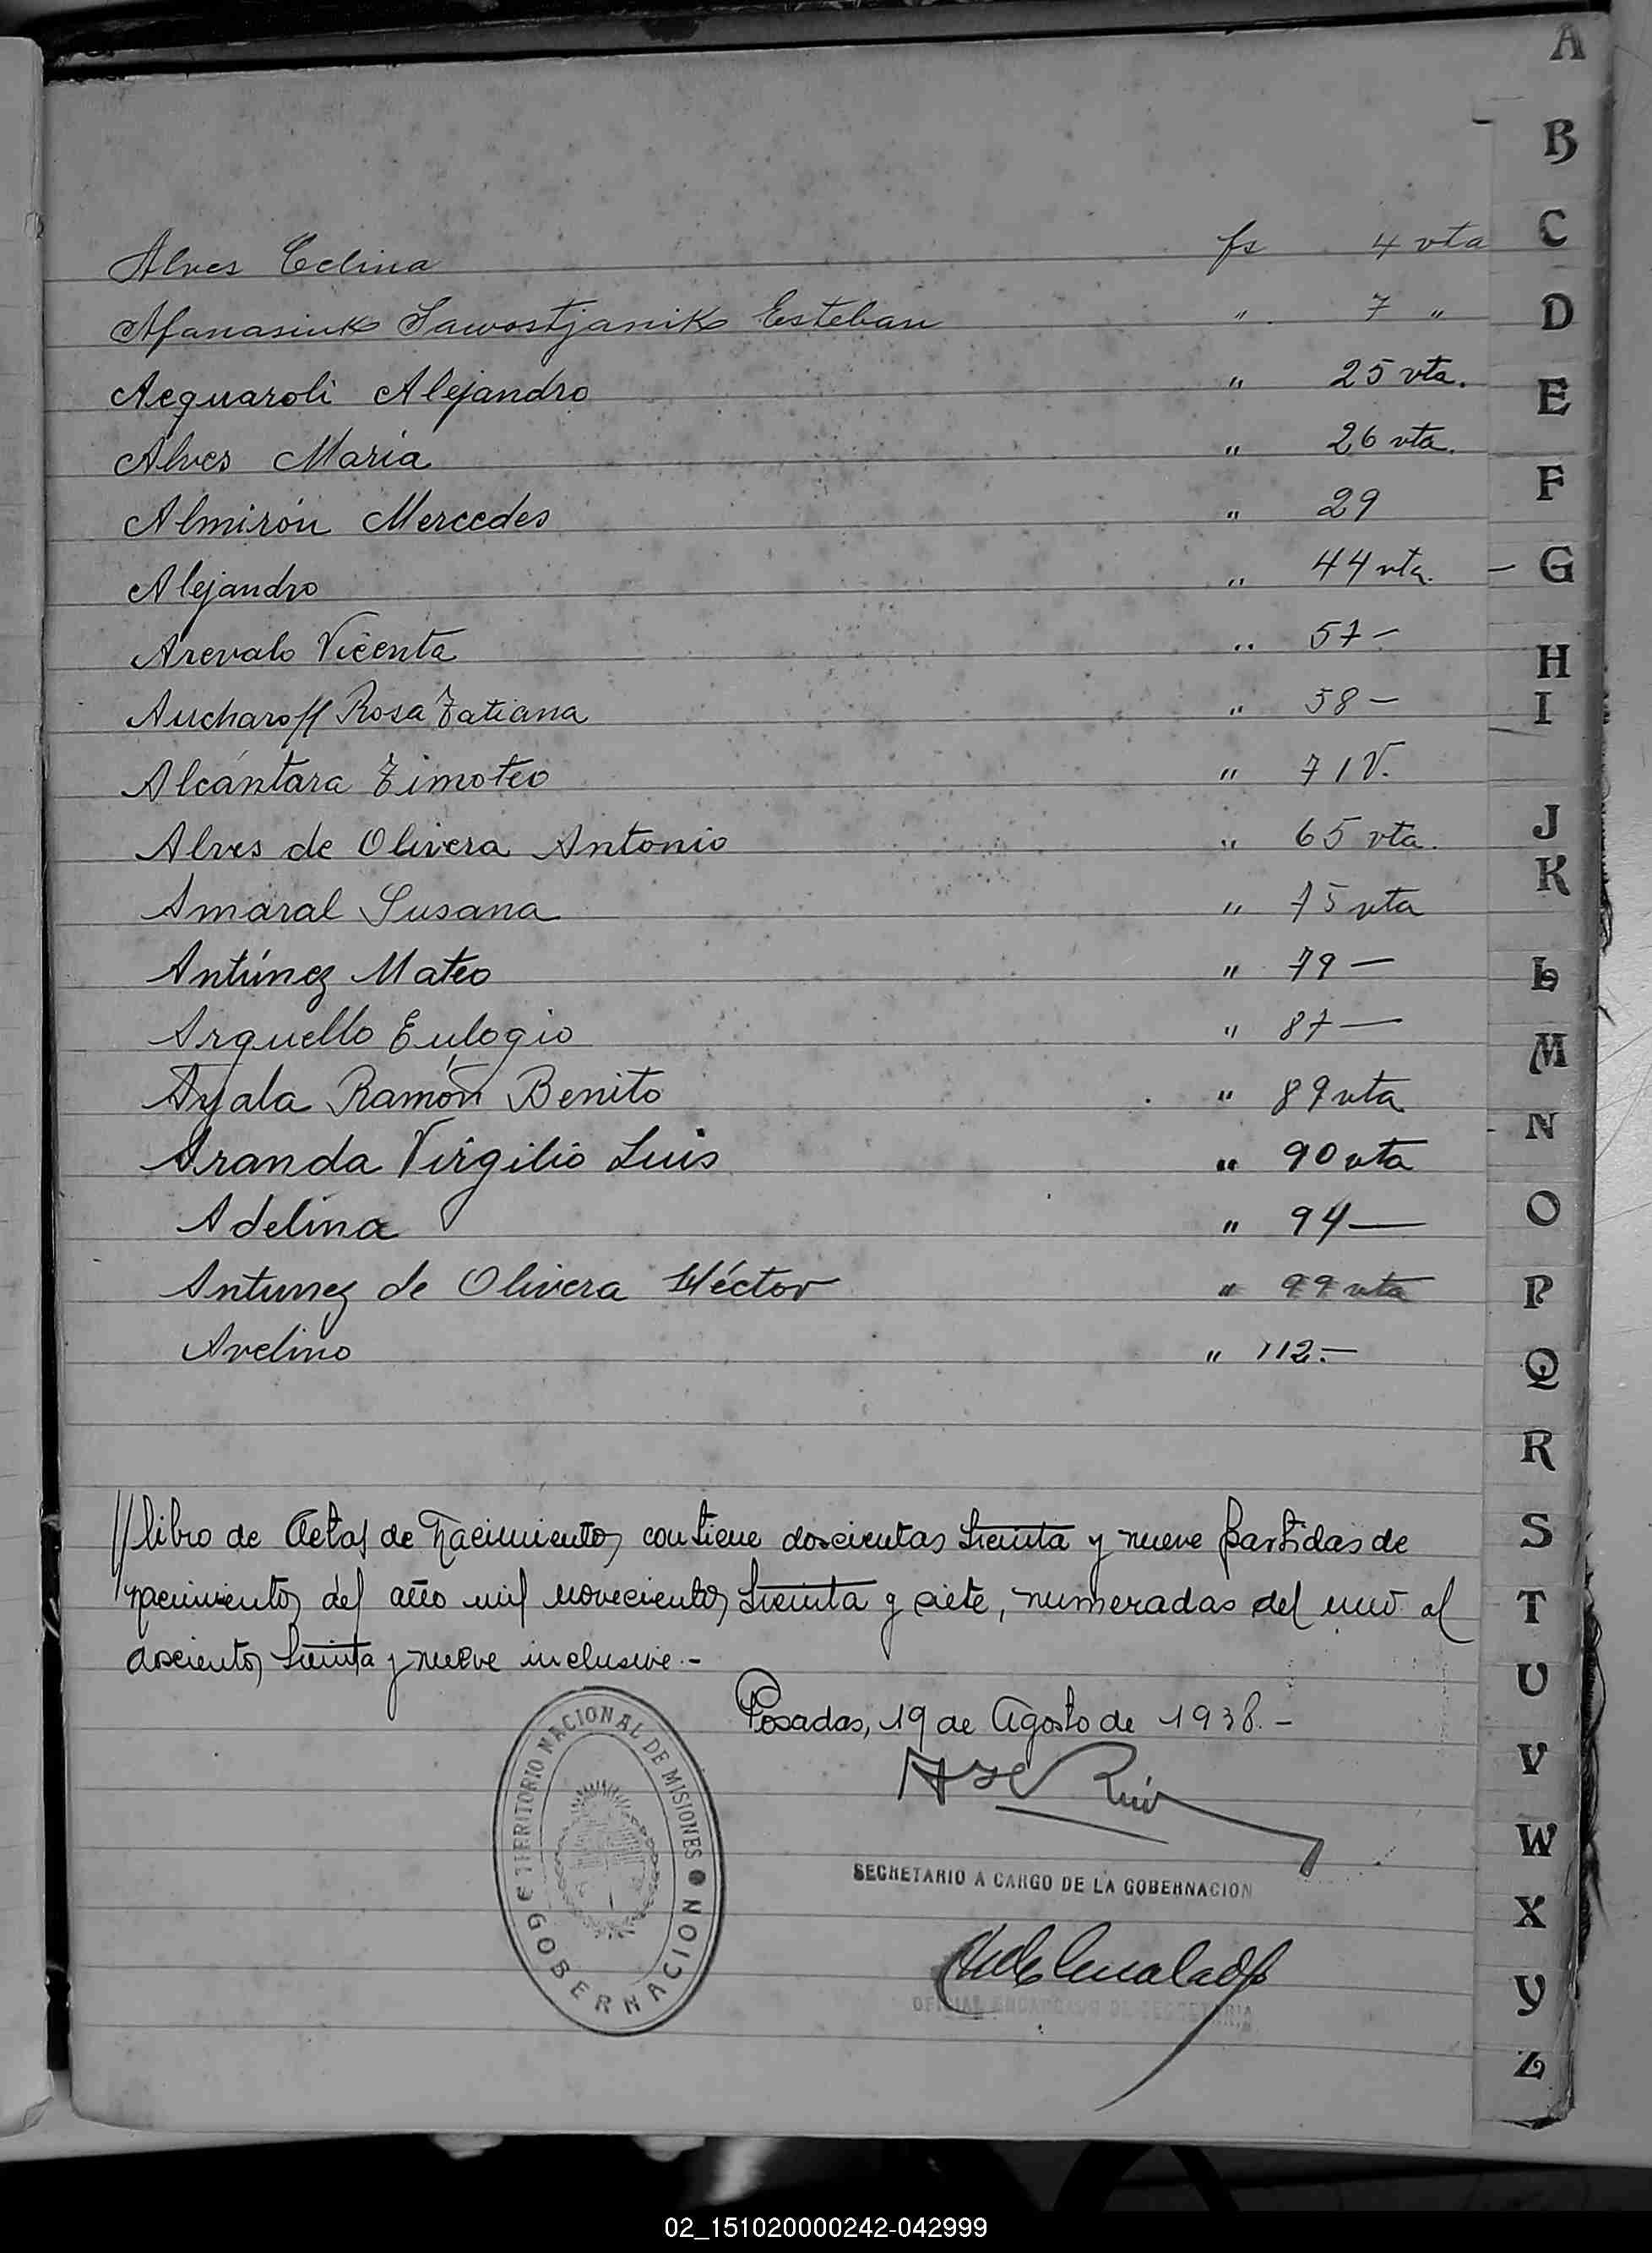 Alves Celina fs 4 vta
Afanasiuk Sawostjanik Esteban " 7 "
Acquaroli Alejandro " 25 vta.
Alves María " 26 vta.
Almirón Mercedes " 29
Alejandro " 44 vta. -
Arevalo Vicenta " 57 -
Aucharoff Rosa Tatiana " 58 -
Alcántara Timoteo " 71 V.
Alves de Olivera Antonio " 65 vta.
Amaral Susana " 75 vta
Antúnez Mateo " 79 —
Arguello Eulogio " 87 —
Ayala Ramón Benito " 89 vta
Aranda Virgilio Luis " 90 vta
Adelina " 94 —
Antunez de Olivera Héctor " 99 vta
Avelino " 112.-
//libro de Actas de Nacimientos contiene doscientas treinta y nueve partidas de
nacimientos del año mil novecientos treinta y siete, numeradas del uno al
doscientos treinta y nueve inclusive.-
Posadas, 19 de Agosto de 1938.-
SECRETARIO A CARGO DE LA GOBERNACION
OFICIAL ENCARGADO DE SECRETARIA
TERRITORIO NACIONAL DE MISIONES
GOBERNACION
A
B
C
D
E
F
G
H
I
J
K
L
M
N
O
P
Q
R
S
T
U
V
W
X
Y
Z
02_151020000242-042999